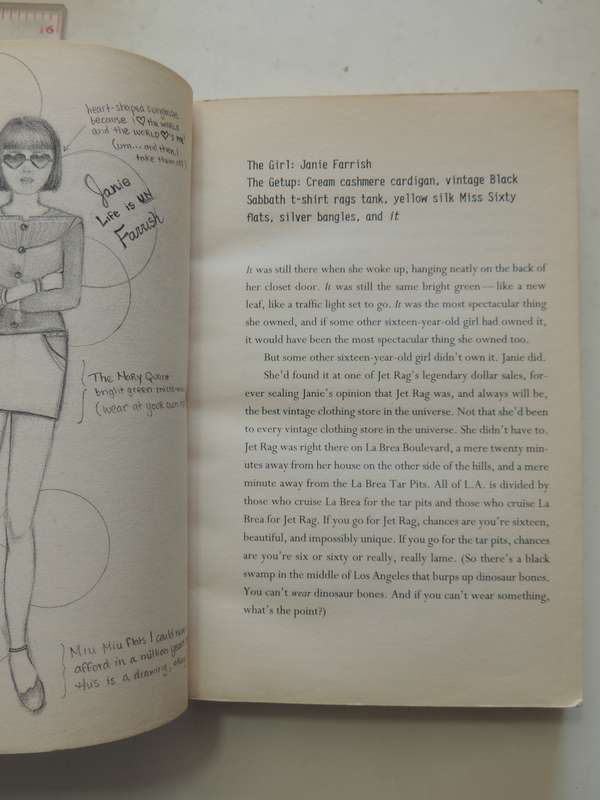 16
heart-shaped sunglasses
because I ♡ the WORLD
and the WORLD ♡'s me!
(um... and then I
take them off)
Janie
Life is UN
Farrish
The Mary Quant
bright green micro-mini
(wear at your own
Miu Miu flats I could never
afford in a million years
this is a drawing, okay
The Girl: Janie Farrish
The Getup: Cream cashmere cardigan, vintage Black
Sabbath t-shirt rags tank, yellow silk Miss Sixty
flats, silver bangles, and it
It was still there when she woke up, hanging neatly on the back of
her closet door. It was still the same bright green—like a new
leaf, like a traffic light set to go. It was the most spectacular thing
she owned, and if some other sixteen-year-old girl had owned it,
it would have been the most spectacular thing she owned too.
But some other sixteen-year-old girl didn't own it. Janie did.
She'd found it at one of Jet Rag's legendary dollar sales, for-
ever sealing Janie's opinion that Jet Rag was, and always will be,
the best vintage clothing store in the universe. Not that she'd been
to every vintage clothing store in the universe. She didn't have to.
Jet Rag was right there on La Brea Boulevard, a mere twenty min-
utes away from her house on the other side of the hills, and a mere
minute away from the La Brea Tar Pits. All of L.A. is divided by
those who cruise La Brea for the tar pits and those who cruise La
Brea for Jet Rag. If you go for Jet Rag, chances are you're sixteen,
beautiful, and impossibly unique. If you go for the tar pits, chances
are you're six or sixty or really, really lame. (So there's a black
swamp in the middle of Los Angeles that burps up dinosaur bones.
You can't wear dinosaur bones. And if you can't wear something,
what's the point?)